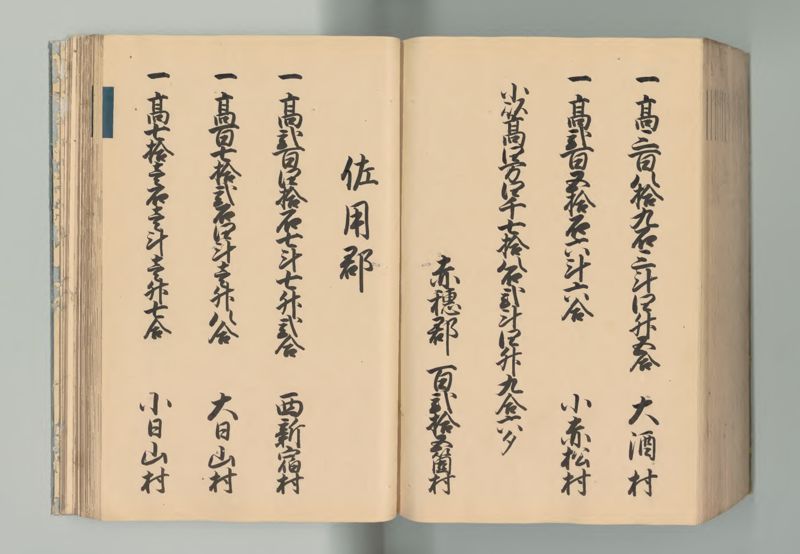 一高三百八拾九石三斗四升五合 大酒村
一高弐百五拾石六斗六合 小赤松村
小以高四万四千七拾八石弐斗四升九合六夕
赤穂郡 百弐拾五箇村
佐用郡
一高弐百四拾石七斗七升弐合 西新宿村
一高百七拾弐石四斗壱升八合 大日山村
一高七拾壱石壱斗壱升七合 小日山村